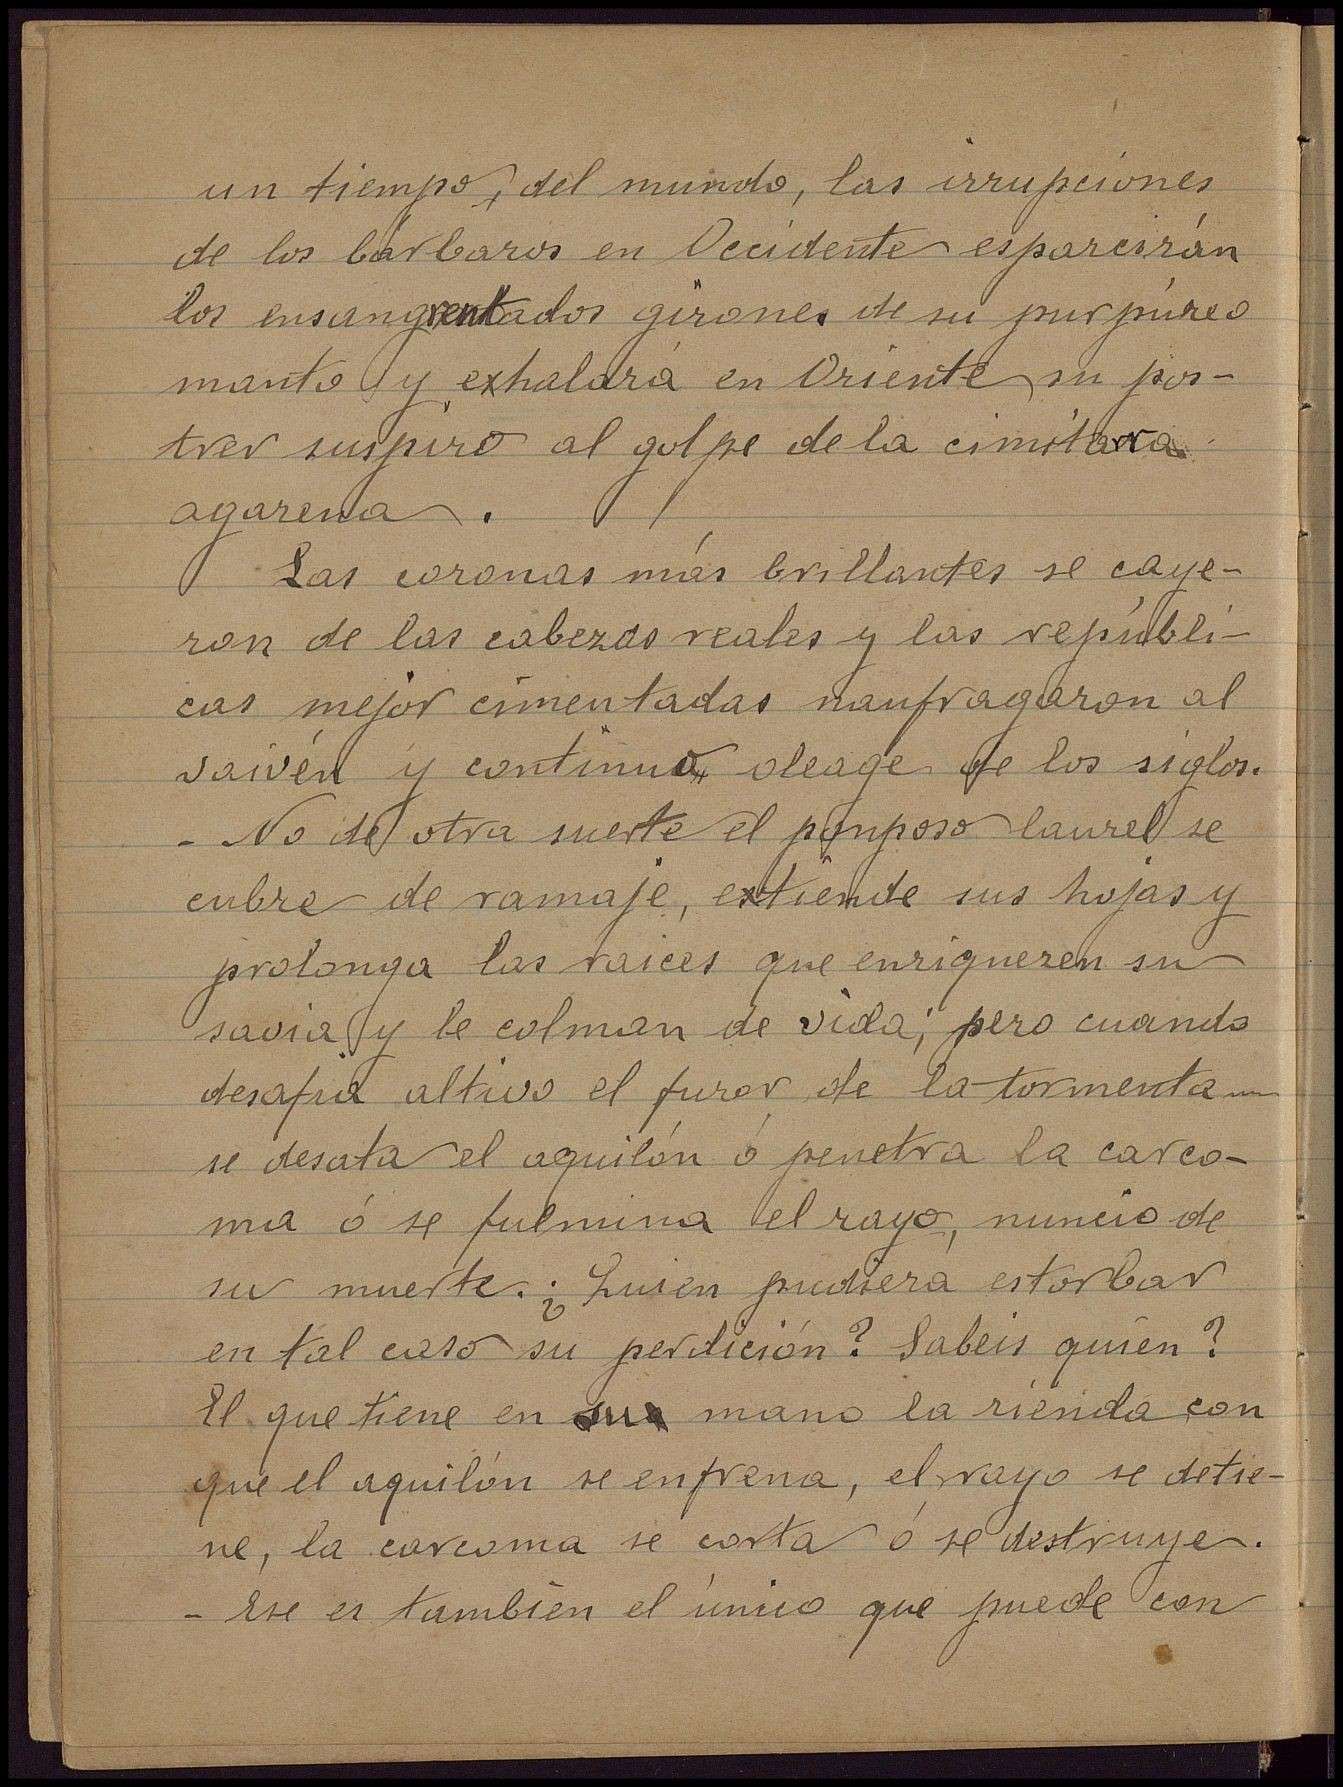 un tiempo, del mundo, las irrupciones
de los bárbaros en Occidente esparcirán
los ensangrentados girones de su purpúreo
manto y exhalará en Oriente su pos-
trer suspiro al golpe de la cimitarra
agarena.
Las coronas más brillantes se caye-
ron de las cabezas reales y las repúbli-
cas mejor cimentadas naufragaron al
vaivén y continuo oleage de los siglos.
- No de otra suerte el pomposo laurel se
cubre de ramaje, extiende sus hojas y
prolonga las raices que enriquezen su
savia y le colman de vida; pero cuando
desafia altivo el furor de la tormenta
se desata el aquilón ó penetra la carco-
ma ó se fulmina el rayo, nuncio de
su muerte. ¿Quien pudiera estorbar
en tal caso su perdición? Sabeis quien?
El que tiene en su mano la rienda con
que el aquilón se enfrena, el rayo se detie-
ne, la carcoma se corta ó se destruye.
- Ese es tambien el único que puede con